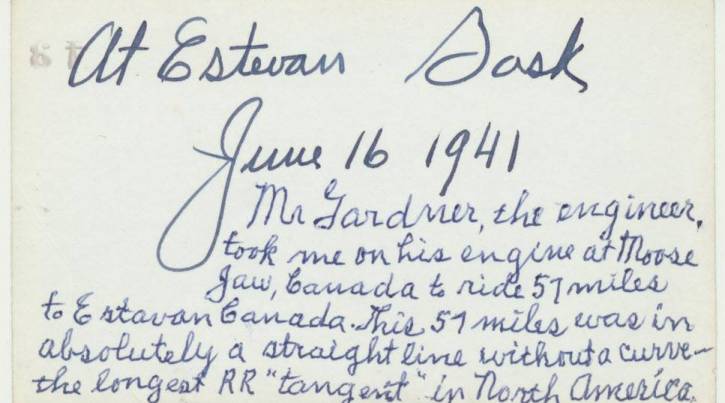 At Estevan Sask
June 16 1941
Mr Gardner, the engineer,
took me on his engine at Moose
Jaw, Canada to ride 57 miles
to Estavan Canada. This 57 miles was in
absolutely a straight line without a curve—
the longest RR "tangent" in North America.